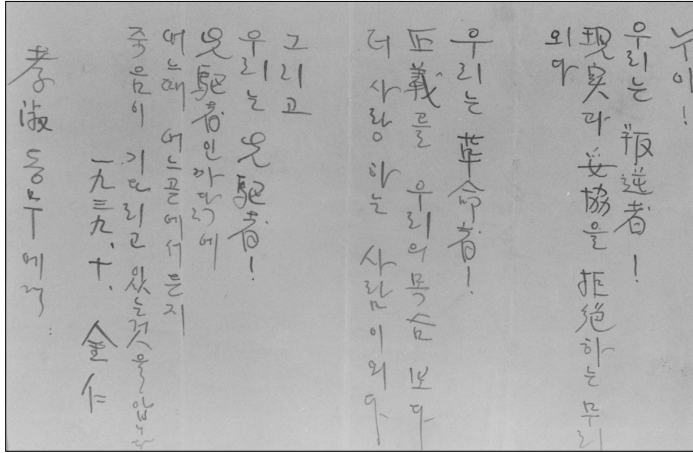 누이!
우리는 叛逆者!
現実과 妥協을 拒絶하는 무리
외다
우리는 革命者!
正義를 우리의 목숨 보다
더 사랑 하는 사람이외다
그리고
우리는 先驅者!
先驅者인 까닭에
어느때 어느곧에서든지
죽음이 기다리고 있는것을 압니다
一九三九、十、 金仁
孝淑동무에게